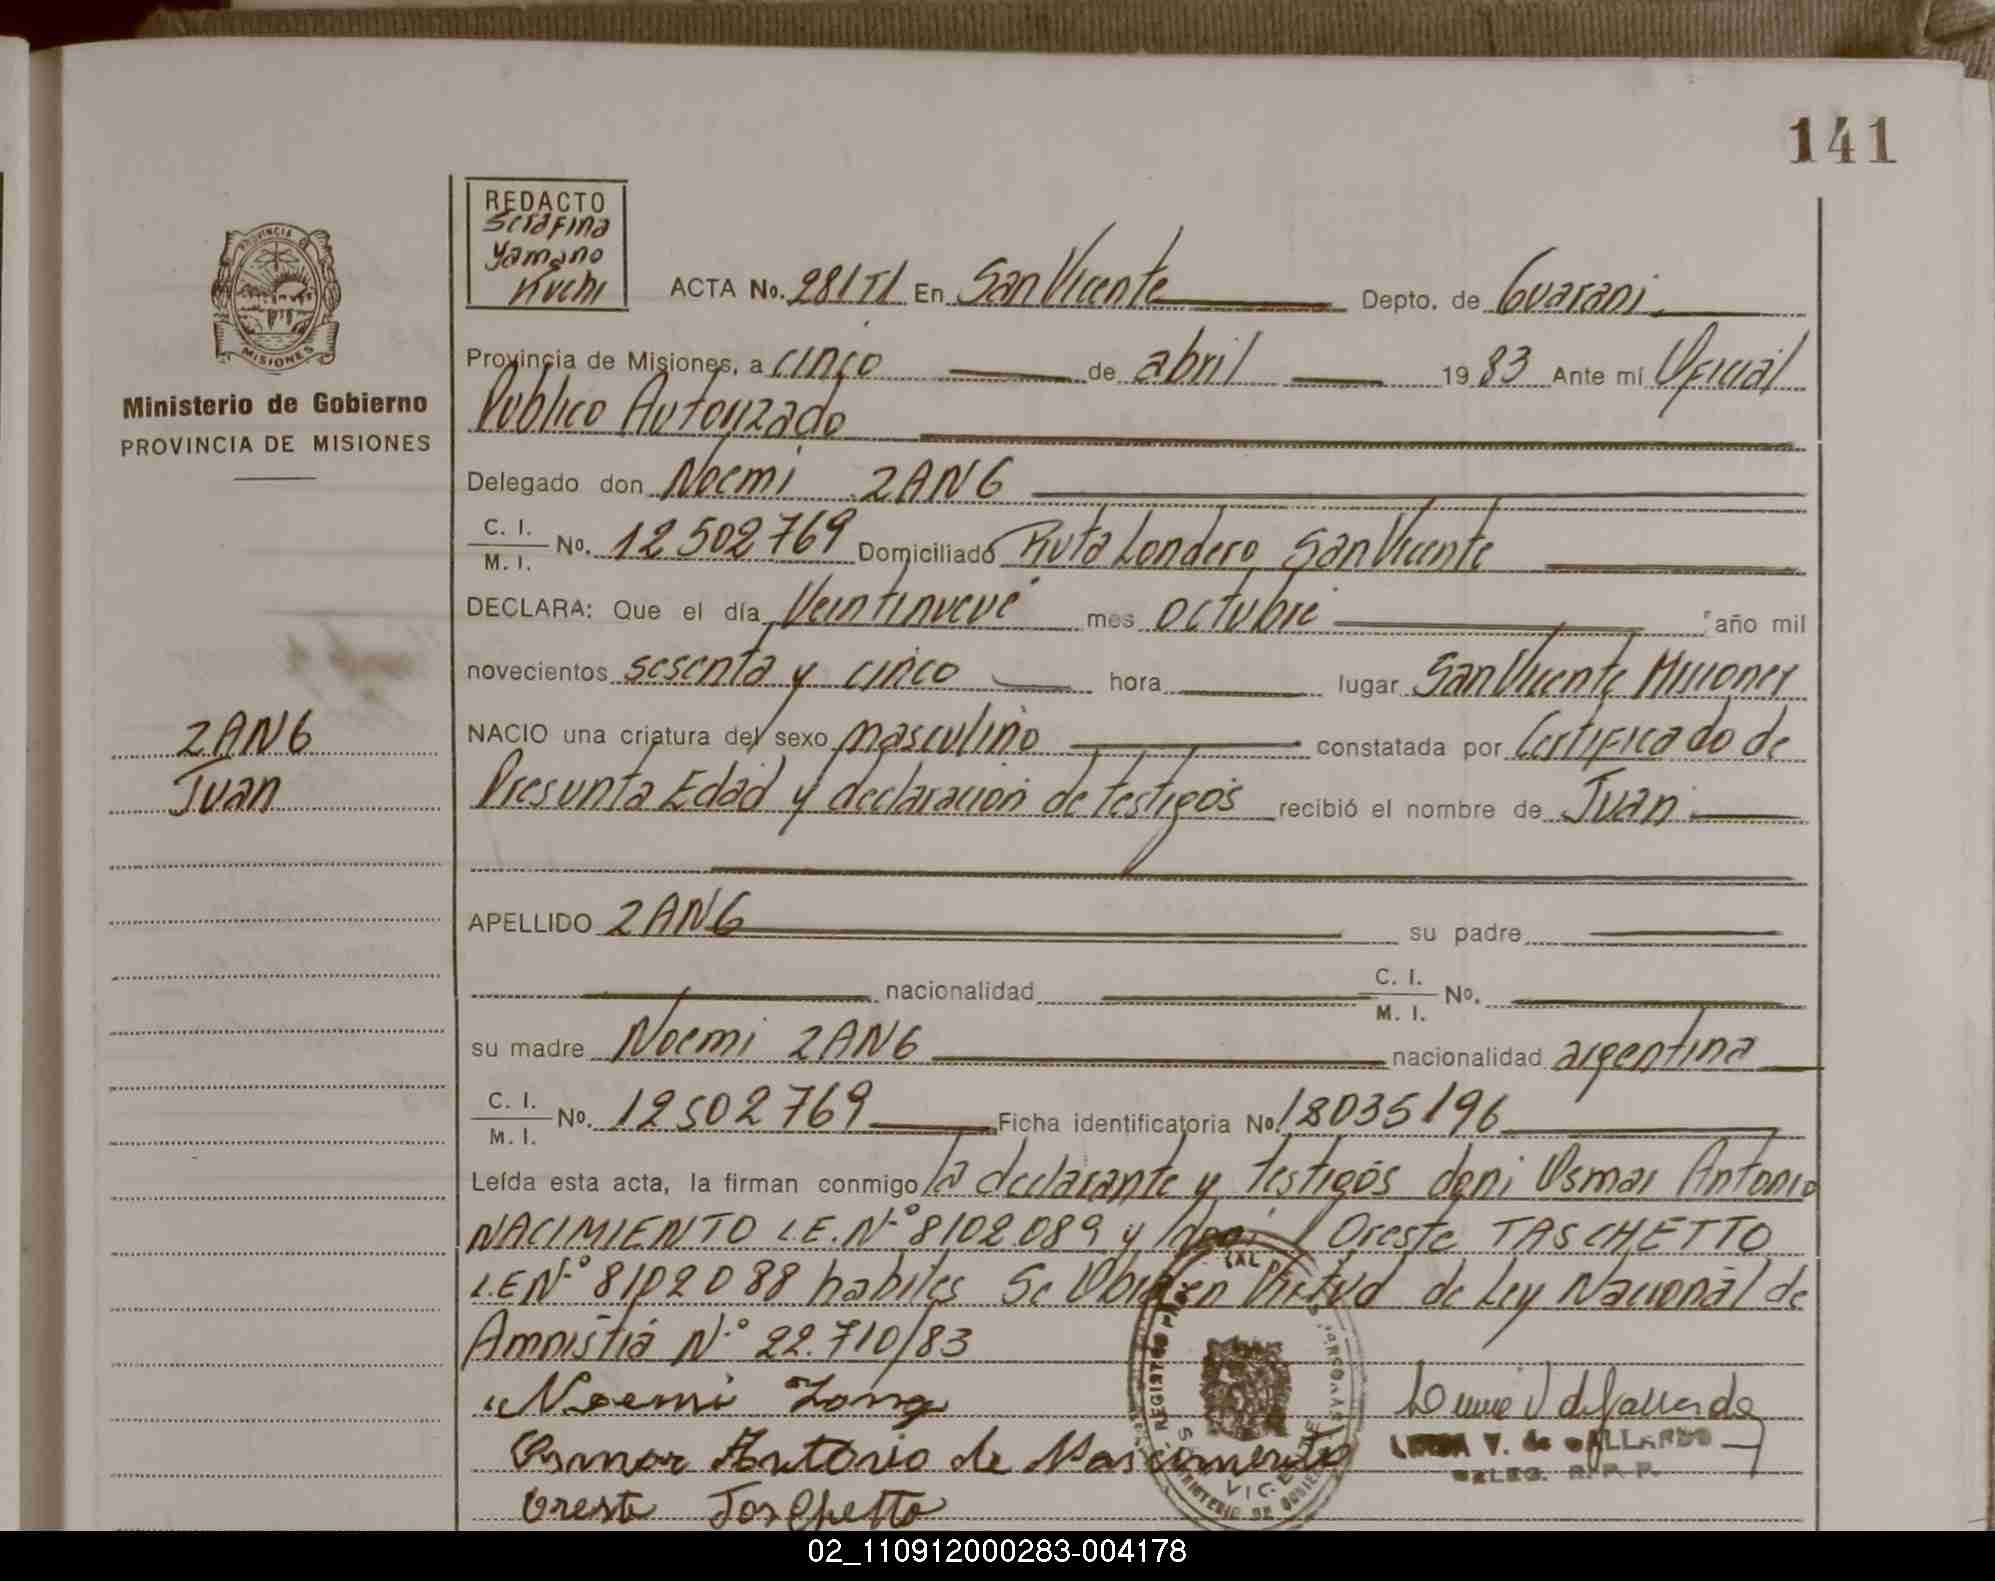 141
REDACTO
Serafina
Yamano
Kuchi
PROVINCIA DE
MISIONES
Ministerio de Gobierno
PROVINCIA DE MISIONES
ACTA No. 281TI En San Vicente Depto. de Guarani
Provincia de Misiones, a cinco de abril 1983 Ante mí Oficial
Publico Autorizado
Delegado don Noemi ZANG
C. I.
M. I. No. 12502769 Domiciliado Ruta Londero San Vicente
DECLARA: Que el día Veintinueve mes octubre año mil
novecientos sesenta y cinco hora lugar San Vicente Misiones
NACIO una criatura del sexo masculino constatada por Certificado de
Presunta Edad y declaracion de testigos recibió el nombre de Juan
ZANG
Juan
APELLIDO ZANG su padre
nacionalidad C. I.
M. I. No.
su madre Noemi ZANG nacionalidad argentina
C. I.
M. I. No. 12502769 Ficha identificatoria No. 18035196
Leída esta acta, la firman conmigo la declarante y testigos don: Osmar Antonio
NACIMIENTO L.E.Nº 8102089 y don: Oreste TASCHETTO
L.E.Nº 8102088 habiles Se Labra en Virtud de Ley Nacional de
Amnistia Nº 22.710/83
Noemi Zang
Osmar Antonio de Nascimento
Oreste Taschetto
V. de GALLARDO
DELEG. R. P. P.
02_110912000283-004178